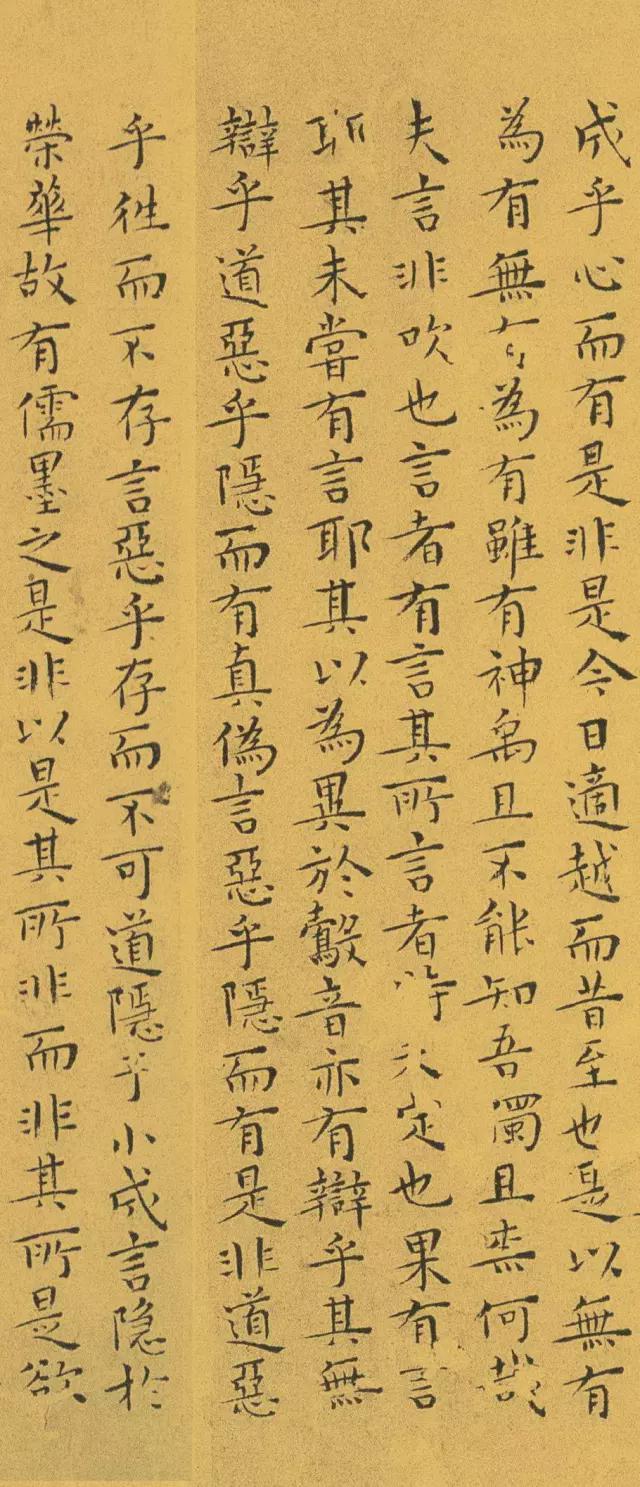 成乎心而有是非是今日適越而昔至也是以無有
為有無有為有雖有神禹且不能知吾獨且柰何哉
夫言非吹也言者有言其所言者特未定也果有言
耶其未嘗有言耶其以為異於鷇音亦有辯乎其無
辯乎道惡乎隱而有真偽言惡乎隱而有是非道惡
乎徃而不存言惡乎存而不可道隱乎小成言隐於
榮華故有儒墨之是非以是其所非而非其所是欲